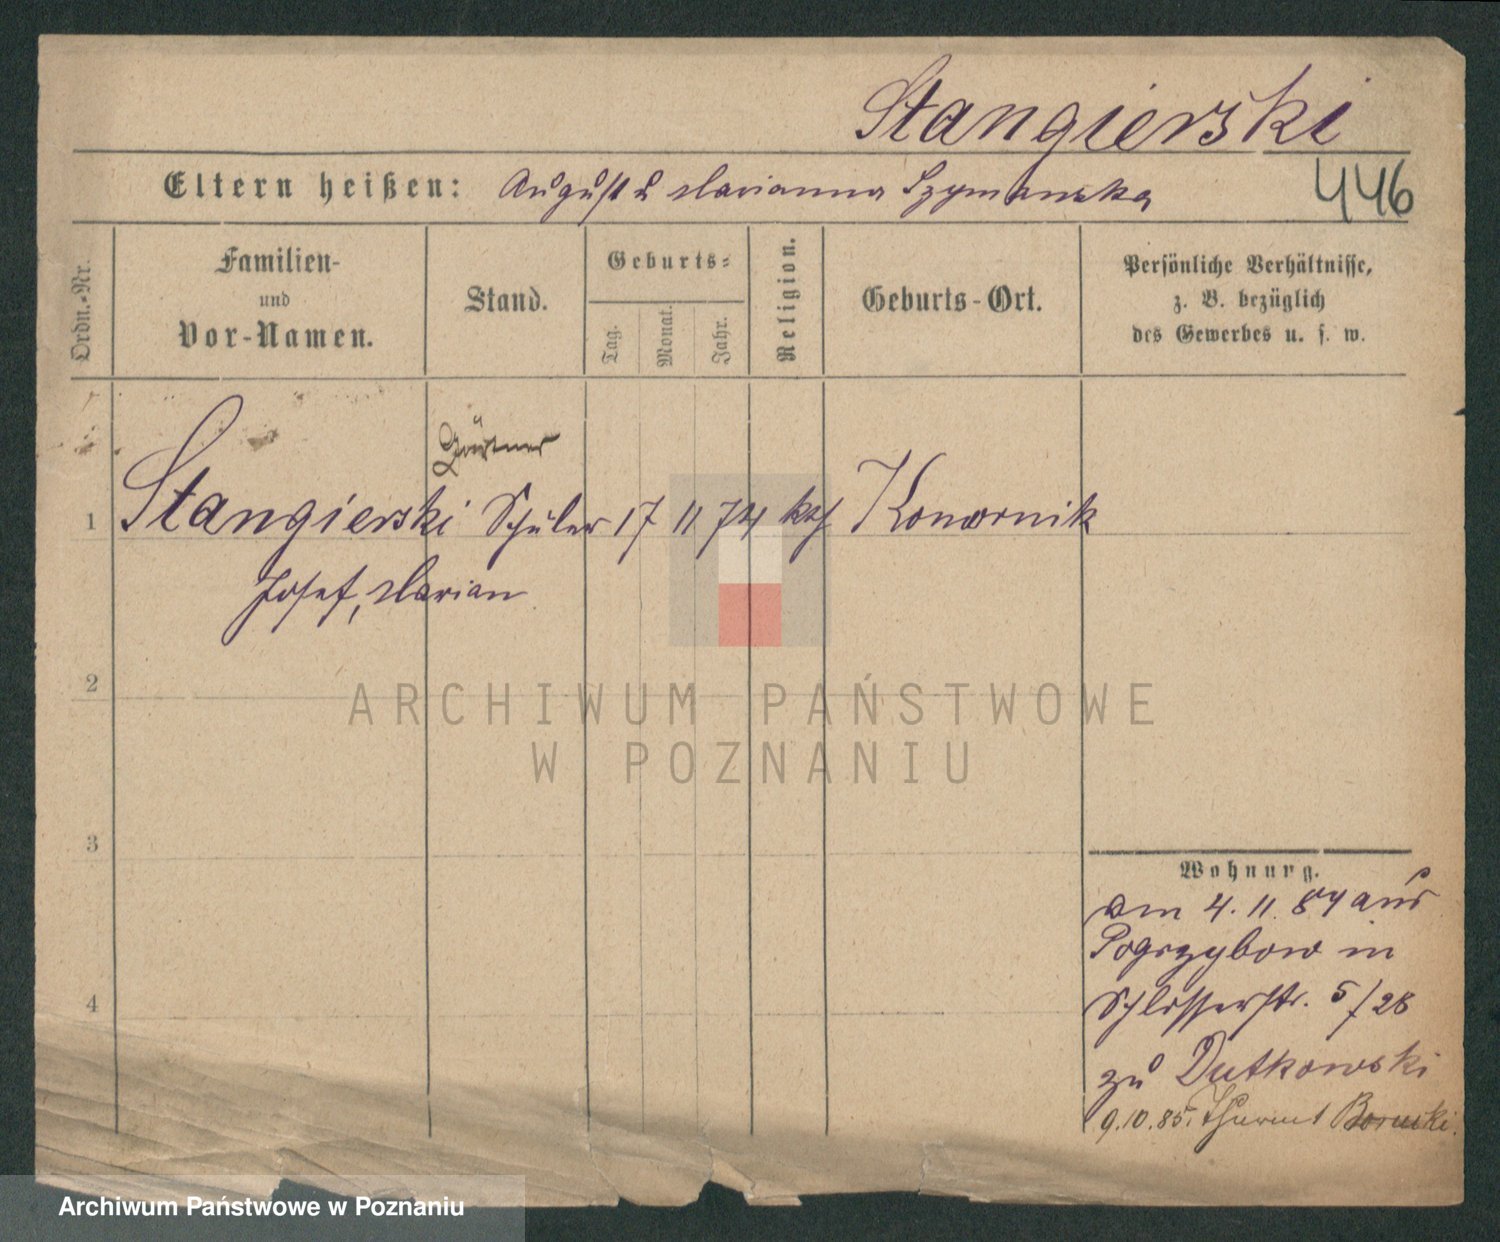 Stangierski
Eltern heißen: August u Marianna Szymanska
446
Ordn.-Nr.
Familien-
und
Vor-Namen.
Stand.
Geburts-
Tag.
Monat.
Jahr.
Religion.
Geburts-Ort.
Persönliche Verhältnisse,
z. B. bezüglich
des Gewerbes u. s. w.
Gärtner
1 Stangierski Schüler 17 11 74 kath Konornik
Josef, Marian
2
3
4
Wohnung.
am 4. 11. 84 aus
Pogrzybow in
Schlosserstr. 5/28
zu Dutkowski
9.10.85.
ARCHIWUM PAŃSTWOWE
W POZNANIU
Archiwum Państwowe w Poznaniu